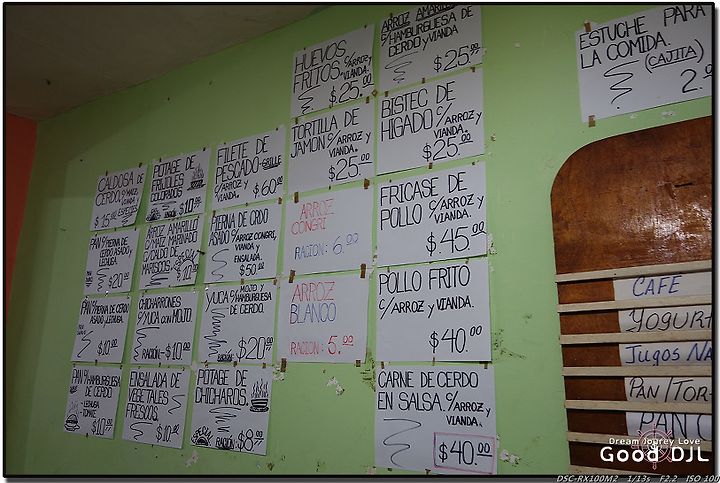 CALDOSA DE
CERDO C/MAIZ,
VIANDA Y
ESPECIES
$15.00
POTAGE DE
FRIJOLES
COLORADOS
$10.00
FILETE DE
PESCADO-GRILLÉ
C/ARROZ Y
VIANDA.
$60.00
HUEVOS
FRITOS C/ARROZ Y
VIANDA.
$25.00
ARROZ AMARILLO
C/HAMBURGUESA DE
CERDO Y VIANDA
$25.00
TORTILLA DE
JAMON C/ARROZ Y
VIANDA.
$25.00
BISTEC DE
HIGADO C/ARROZ Y
VIANDA.
$25.00
PAN C/PIERNA DE
CERDO ASADO Y
LECHUGA.
$20.00
ARROZ AMARILLO
C/MAIZ MARINADO
C/CALDO DE
MARISCOS.
$10.00
PIERNA DE CRDO
ASADO C/ARROZ CONGRI,
VIANDA Y
ENSALADA.
$50.00
ARROZ
CONGRI
RACION: 6.00
FRICASE DE
POLLO C/ARROZ Y
VIANDA.
$45.00
PAN C/PIERNA DE CERDO
ASADO Y LECHUGA.
$10.00
CHICHARRONES
C/YUCA CON MOJO.
RACIÓN-$10.00
YUCA C/MOJO Y
HAMBURGUESA
DE CERDO.
$20.00
ARROZ
BLANCO
RACION: 5.00
POLLO FRITO
C/ARROZ Y VIANDA.
$40.00
PAN C/HAMBURGUESA
DE CERDO
-LECHUGA
-TOMATE
$10.00
ENSALADA DE
VEGETALES
FRESCOS.
$10.00
POTAGE DE
CHICHAROS.
RACIÓN
$8.00
CARNE DE CERDO
EN SALSA. C/ARROZ Y
VIANDA.
$40.00
ESTUCHE PARA
LA COMIDA.
(CAJITA)
2.00
CAFE
YOGURT
JUGOS NA
PAN/TOR-
PAN C
Dream Journey Love
Good DJL
DSC-RX100M2 1/13s F2.2 ISO 100